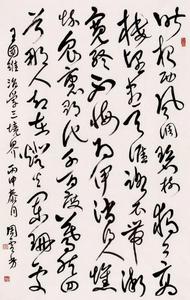 昨夜西风凋碧树独上高
楼望尽天涯路衣带渐
宽终不悔为伊消得人憔
悴众里寻他千百度蓦然回
首那人却在灯火阑珊处
王国维治学三境界 丙申 月 周